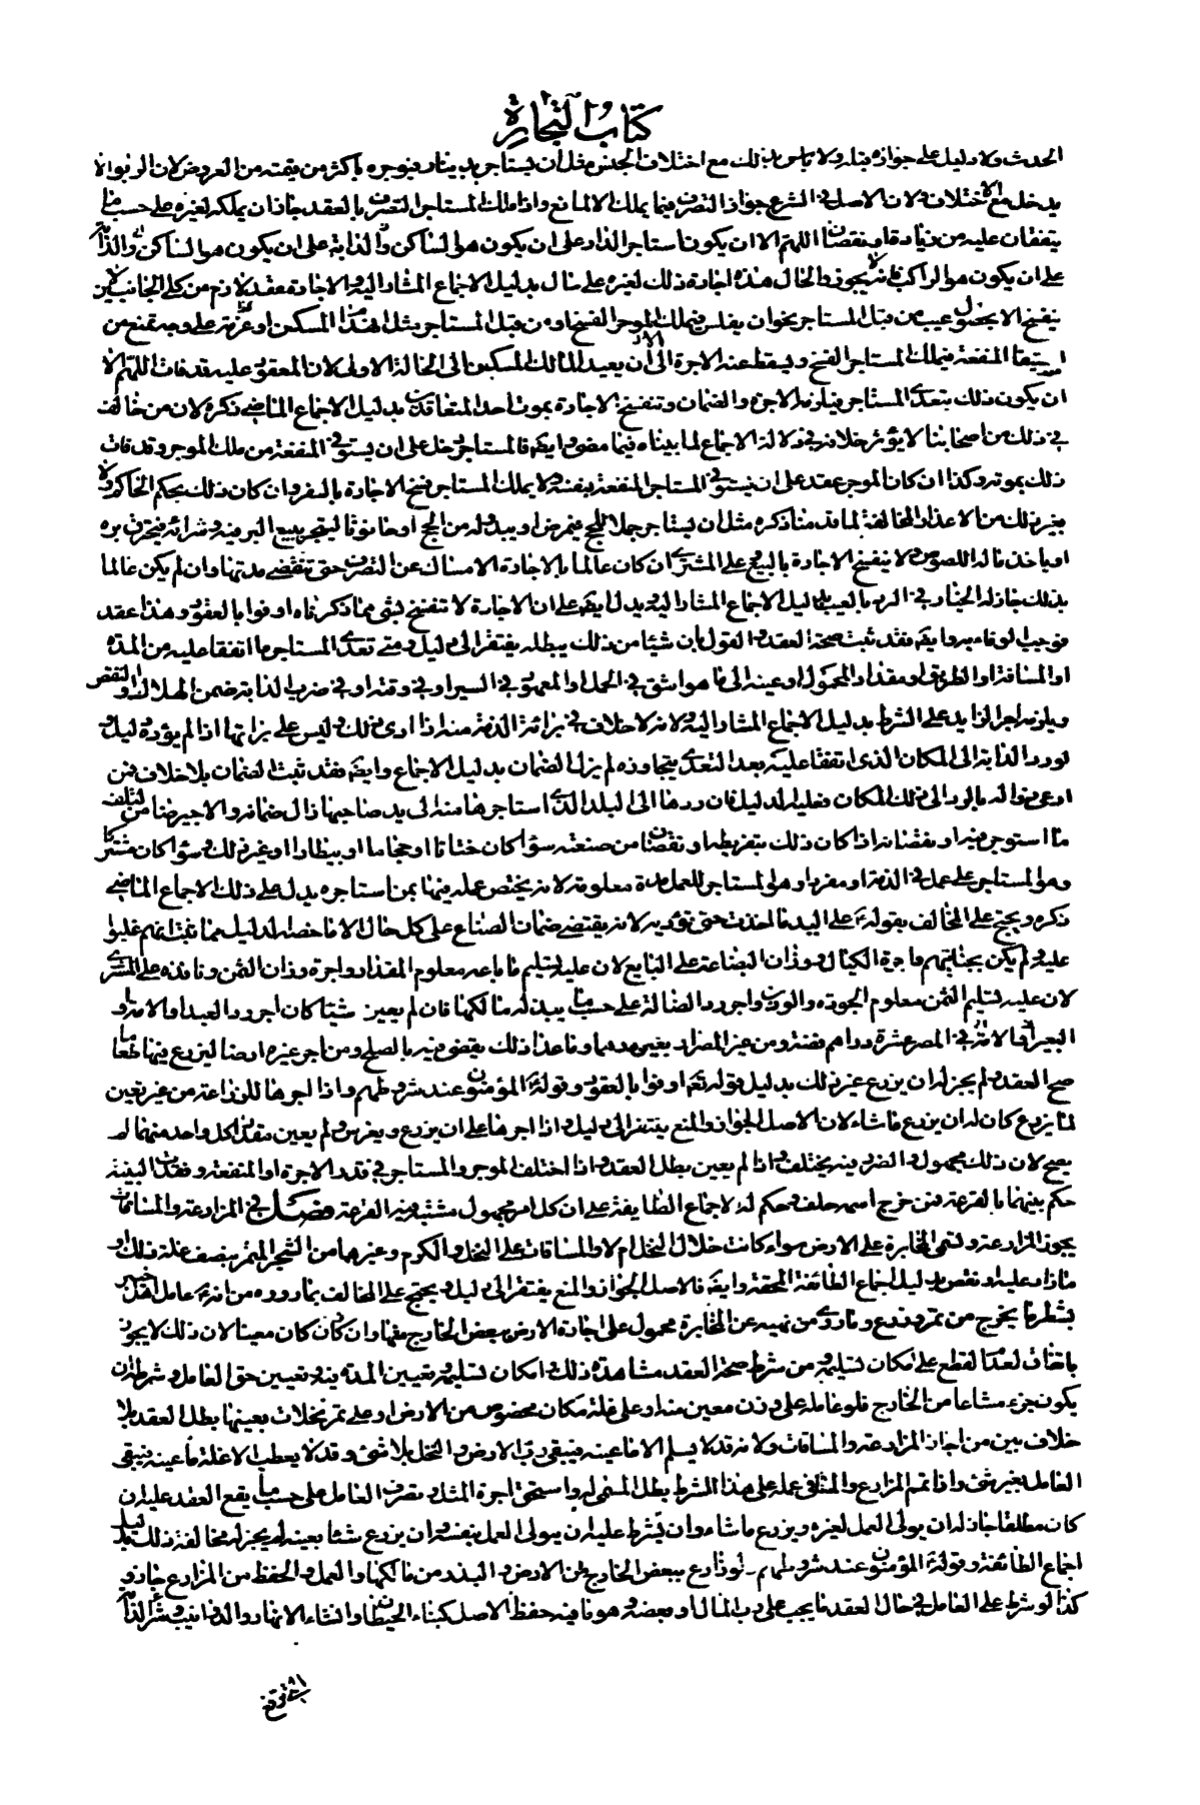 كتاب التجارة
الحدث ولا دليل على جوازه قبله ولا بأس بذلك مع اختلاف الجنس مثل ان يستاجر بدينار فيوجره باكثر من قيمته من العروض لان الربوا لا
يدخل مع الاختلاف ولان الاصل في الشرع جواز التصرف فيما يملك الا لمانع واذا ملك المستاجر التصرف بالعقد جاز ان يملكه لغيره على حسب ما
يتفقان عليه من زيادة او نقصان اللهم الا ان يكون استاجر الدار على ان يكون هو الساكن والدابة على ان يكون هو الساكن والدابة
على ان يكون هو الراكب فانه لا يجوز والحال هذه اجارة ذلك لغيره على حال بدليل الاجماع المشار اليه والاجارة عقد لازم من كلي الجانبين لا
ينفسخ الا بحصول عيب من قبل المستاجر نحو ان يفلس فيملك الموجر الفسخ او من قبل المستاجر مثل انهدام المسكن او غرقه على وجه يمنع من
استيفاء المنفعة فيملك المستاجر الفسخ ويسقط عنه الاجرة الى ان يعيد المالك المسكن الى الحالة الاولى لان المعقود عليه قد فات اللهم الا
ان يكون ذلك بتعدي المستاجر فيلزمه الاجرة والضمان وتنفسخ الاجارة بموت احد المتعاقدين بدليل الاجماع الماضي ذكره لان من خالف
في ذلك من اصحابنا لا يؤثر خلافه في دلالة الاجماع لما بيناه فيما مضى وايضا فالمستاجر دخل على ان يستوفي المنفعة من ملك الموجر وقد فات
ذلك بموته وكذا ان كان الموجر عقد على ان يستوفي المستاجر المنفعة بنفسه ولا يملك المستاجر فسخ الاجارة بالسفر وان كان ذلك بحكم الحاكم ولا
بغير ذلك من الاعذار المخالفة لما قدمنا ذكره مثل ان يستاجر جملا للحج فيمرض او يبدو له من الحج او حانوتا ليتجر ببيع البر فيه وشرائه فيحترق بره
او ياخذ ماله اللصوص ولا ينفسخ الاجارة بالبيع وعلى المشتري ان كان عالما بالاجارة الامساك عن التصرف حتى تنقضي مدتها وان لم يكن عالما
بذلك جاز له الخيار في الرد بالعيب بدليل الاجماع المشار اليه ويدل ايضا على ان الاجارة لا تنفسخ بشئ مما ذكرناه اوفوا بالعقود وهذا عقد
فوجب الوفاء به وايضا فقد ثبت صحة العقد والقول بان شيئا من ذلك يبطله يفتقر الى دليل ومتى تعدى المستاجر ما اتفقا عليه من المدة
او المسافة او الطريق او مقدار المحمول او عينه الى ما هو اشق في الحمل او المعهود في السير او في وقته او في ضرب الدابة ضمن الهلاك او النقص
ويلزمه اجر الزايد على الشرط بدليل الاجماع المشار اليه ولانه لا خلاف في برائة الذمة منه اذا ادى ذلك وليس على برائتها اذا لم يؤده دليل و
لو رد الدابة الى المكان الذي اتفقا عليه بعد التعدي بتجاوزه لم يزل الضمان بدليل الاجماع وايضا فقد ثبت الضمان بلا خلاف فمن
ادعى زواله بالرد الى ذلك المكان فعليه الدليل فان ردها الى البلد الذي استاجرها منه الى يد صاحبها زال ضمانه والاجير ضامن لتلف
ما استوجر فيه او نقصانه اذا كان ذلك بتفريطه او نقصان من صنعته سواء كان ختانا او حجاما او بيطارا او غير ذلك وسواء كان مشتركا
وهو المستاجر على عمل في الذمة او مفردا وهو المستاجر للعمل مدة معلومة لانه يختص عمله فيها بمن استاجره يدل على ذلك الاجماع الماضي
ذكره ويحتج على المخالف بقوله ع على اليد ما اخذت حتى تؤديه لانه يقتضي ضمان الصناع على كل حال الا ما خصه الدليل مما ثبت انهم غلبوا
عليه ولم يكن بجنايتهم واجرة الكيال ووزان البضاعة على البايع لان عليه تسليم ما باعه معلوم المقدار واجرة وزان الثمن وناقده على المشتري
لان عليه تسليم الثمن معلوم الجودة والوزن واجر رد الضالة على حسب ما يبذله مالكها فان لم يعين شيئا كان اجر رد العبد او الامة او
البعير في المصر عشرة دراهم فضة ومن غير المصر اربعين درهما وما عدا ذلك يقضى فيه بالصلح ومن اجر غيره ارضا ليزرع فيها طعاما
صح العقد ولم يجز له ان يزرع غير ذلك بدليل قوله تعالى اوفوا بالعقود وقوله ع المؤمنون عند شروطهم واذا اجرها للزراعة من غير تعيين
لما يزرع كان له ان يزرع ما شاء لان الاصل الجواز والمنع يفتقر الى دليل واذا اجرها على ان يزرع ويغرس ولم يعين مقدار كل واحد منهما لم
يصح لان ذلك مجهول والضرر فيه يختلف واذا لم يعين بطل العقد واذا اختلف الموجر والمستاجر في قدر الاجرة او المنفعة وفقدت البينة
حكم بينهما بالقرعة فمن خرج اسمه حلف وحكم له لاجماع الطايفة على ان كل امر مجهول مشتبه فيه القرعة فصل في المزارعة والمساقات
يجوز المزارعة وتسمى المخابرة على الارض سواء كانت خلال النخل ام لا والمساقات على النخل والكرم وغيرهما من الشجر المثمر بنصف غلة ذلك او
ما زاد عليه او نقص بدليل اجماع الطائفة المحقة وايضا فالاصل الجواز والمنع يفتقر الى دليل ويحتج على المخالف بما رووه من انه ع عامل اهل خيبر
بشطر ما يخرج من تمر وزرع وما روي من نهيه عن المخابرة محمول على اجارة الارض ببعض الخارج منها وان كان معينا لان ذلك لا يجوز
باتفاق لعدم القطع على امكان تسليمه ومن شرط صحة العقد مشاهدة ذلك وامكان تسليمه وتعيين المدة فيه وتعيين حق العامل وشرطه ان
يكون جزء مشاعا من الخارج فلو عامله على وزن معين منه او على غلة مكان مخصوص من الارض او على تمر نخلات بعينها بطل العقد بلا
خلاف بين من اجاز المزارعة والمساقات ولانه قد لا يسلم الا ما عينه فيبقى رب الارض والنخل بلا شئ وقد لا يعطب الا غلة ما عينه فيبقى
العامل بغير شئ واذا تمم المزارع والمساقي عمله على هذا الشرط بطل المسمى له واستحق اجرة المثل وتصرف العامل على حسب ما يقع العقد عليه ان
كان مطلقا جاز له ان يولى العمل لغيره ويزرع ما شاء وان شرط عليه ان يتولى العمل بنفسه وان يزرع شيئا بعينه لم يجز له مخالفة ذلك بدليل
اجماع الطائفة وقوله ع المؤمنون عند شروطهم لو زارع ببعض الخارج من الارض والبذر من مالكها والعمل والحفظ من المزارع جاز و
كذا لو شرط على العامل في حال العقد ما يجب على رب المال او بعضه وهو ما فيه حفظ الاصل كبناء الحيطان وانشاء الانهار والدواليب وشراء الدابة